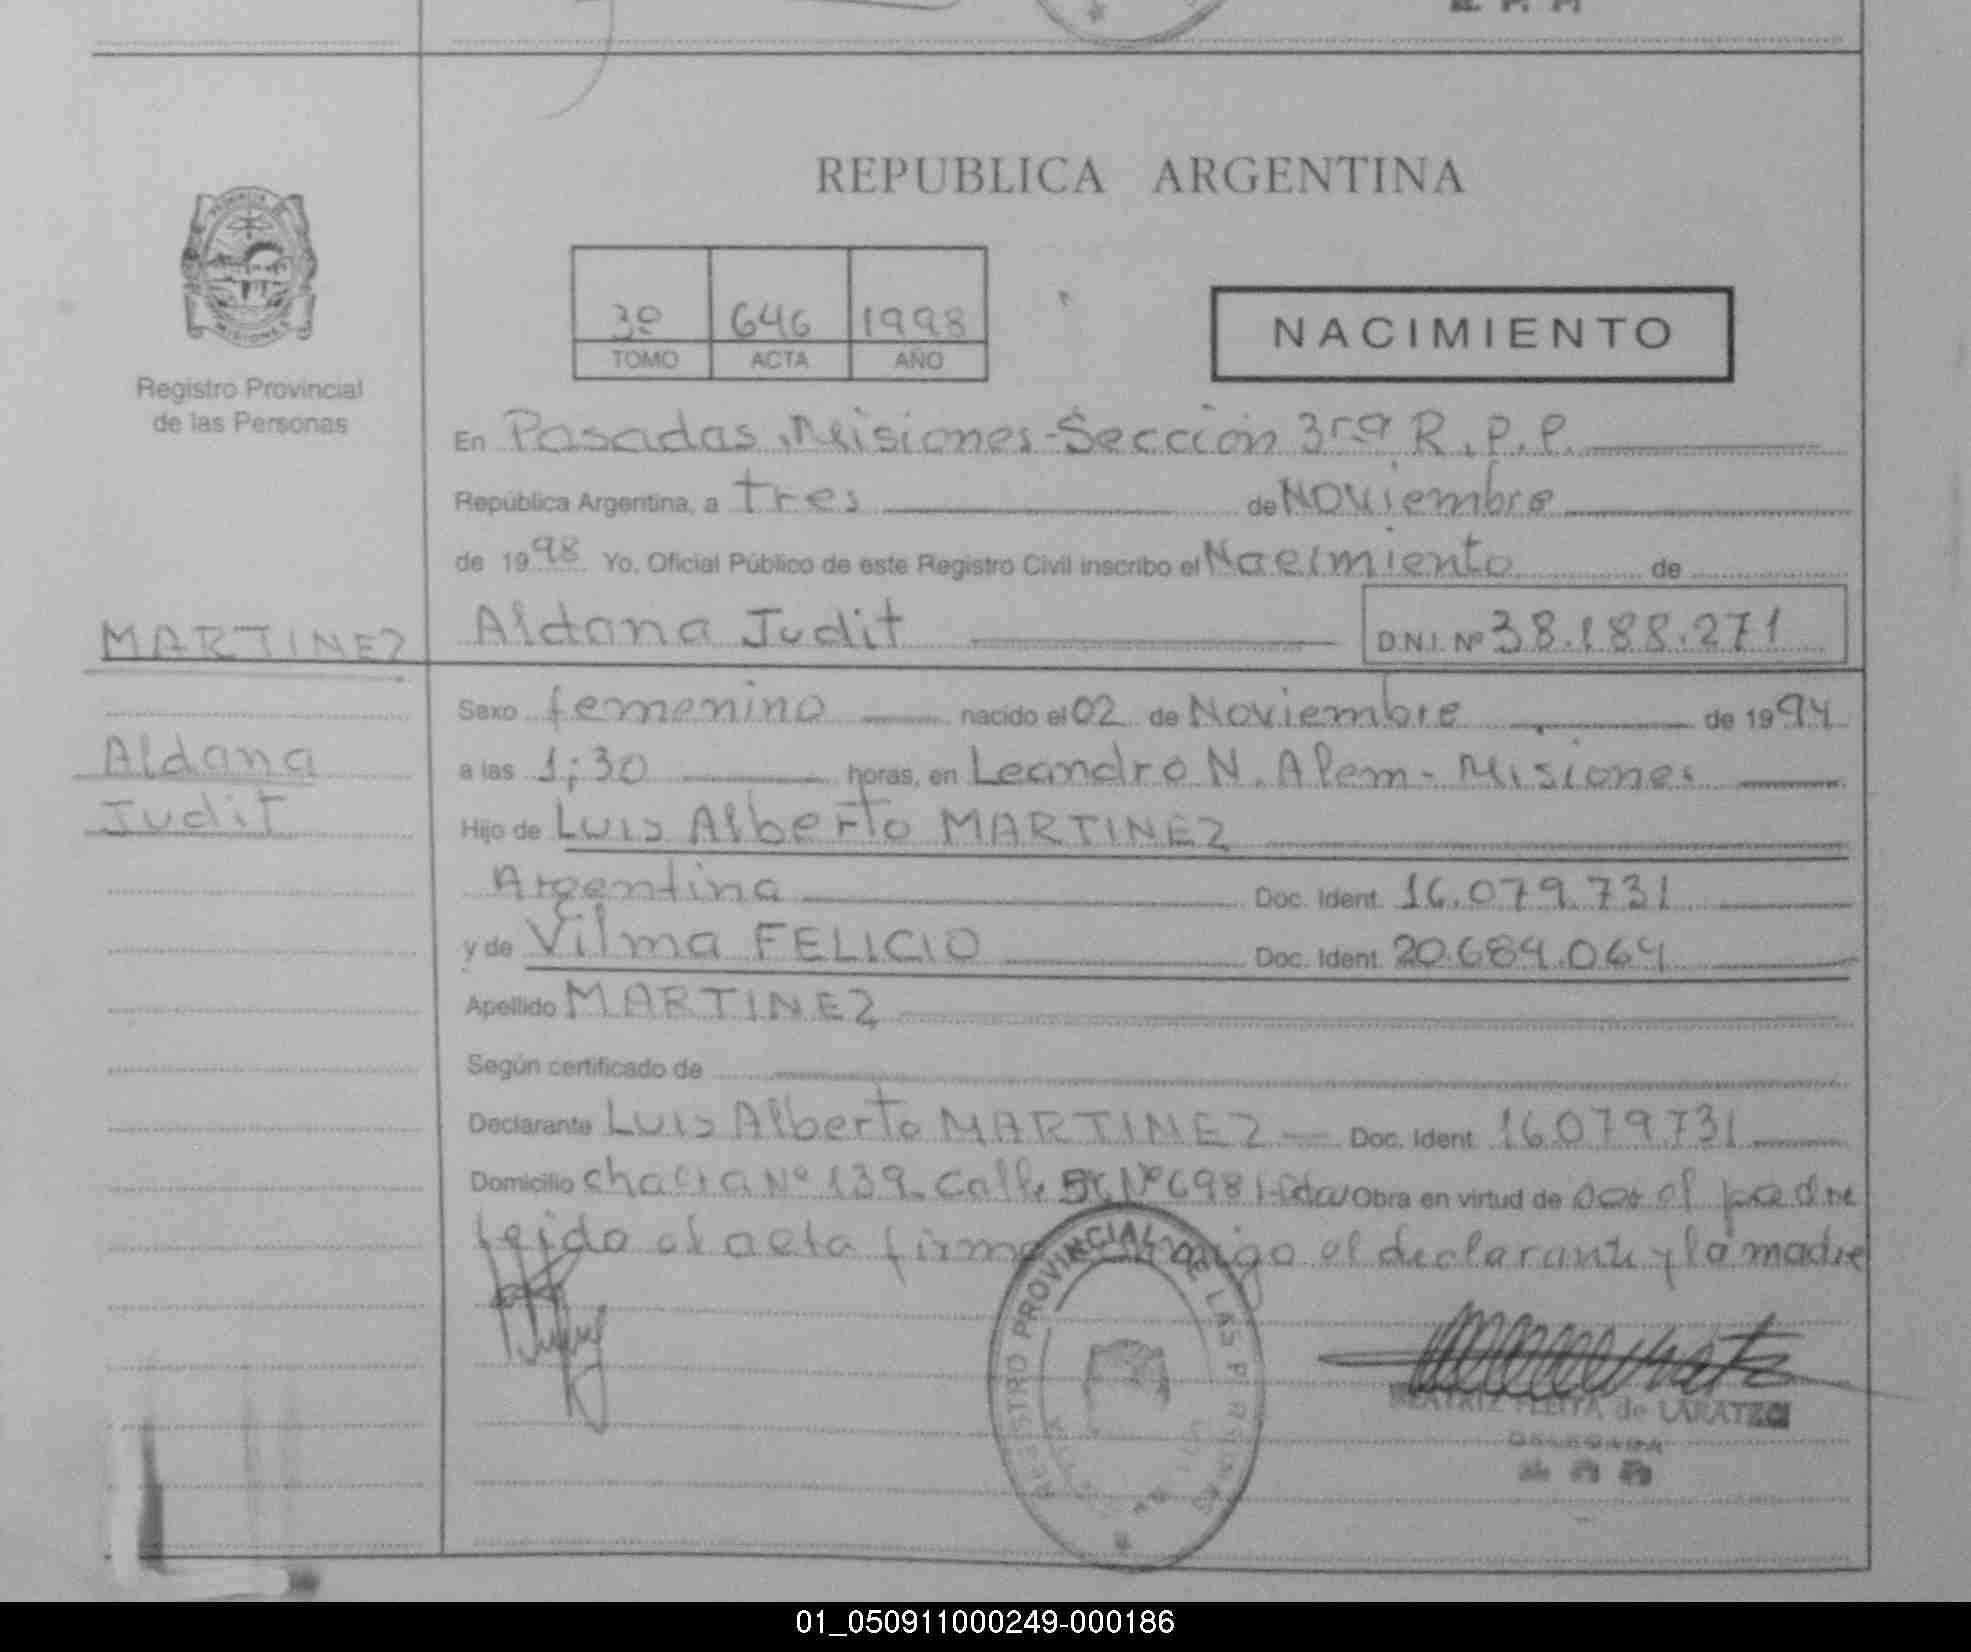 REPUBLICA ARGENTINA
3º 646 1998
TOMO ACTA AÑO
NACIMIENTO
Registro Provincial
de las Personas
En Posadas, Misiones-Sección 3ra R.P.P.
República Argentina, a tres de Noviembre
de 1998 Yo, Oficial Público de este Registro Civil inscribo el Nacimiento de
MARTINEZ
Aldana Judit D.N.I. Nº 38.188.271
Sexo femenino nacido el 02 de Noviembre de 1994
Aldana
Judit
a las 1;30 horas, en Leandro N. Alem - Misiones
Hijo de Luis Alberto MARTINEZ
Argentina Doc. Ident. 16.079.731
y de Vilma FELICIO Doc. Ident. 20.684.064
Apellido MARTINEZ
Según certificado de
Declarante Luis Alberto MARTINEZ Doc. Ident. 16079731
Domicilio chacra Nº 139. Calle Nº 6981 Obra en virtud de ser el padre
leido el acta firma conmigo el declarante y la madre
REGISTRO PROVINCIAL DE LAS PERSONAS
BEATRIZ FLEITA de
DELEGADA
01_050911000249-000186